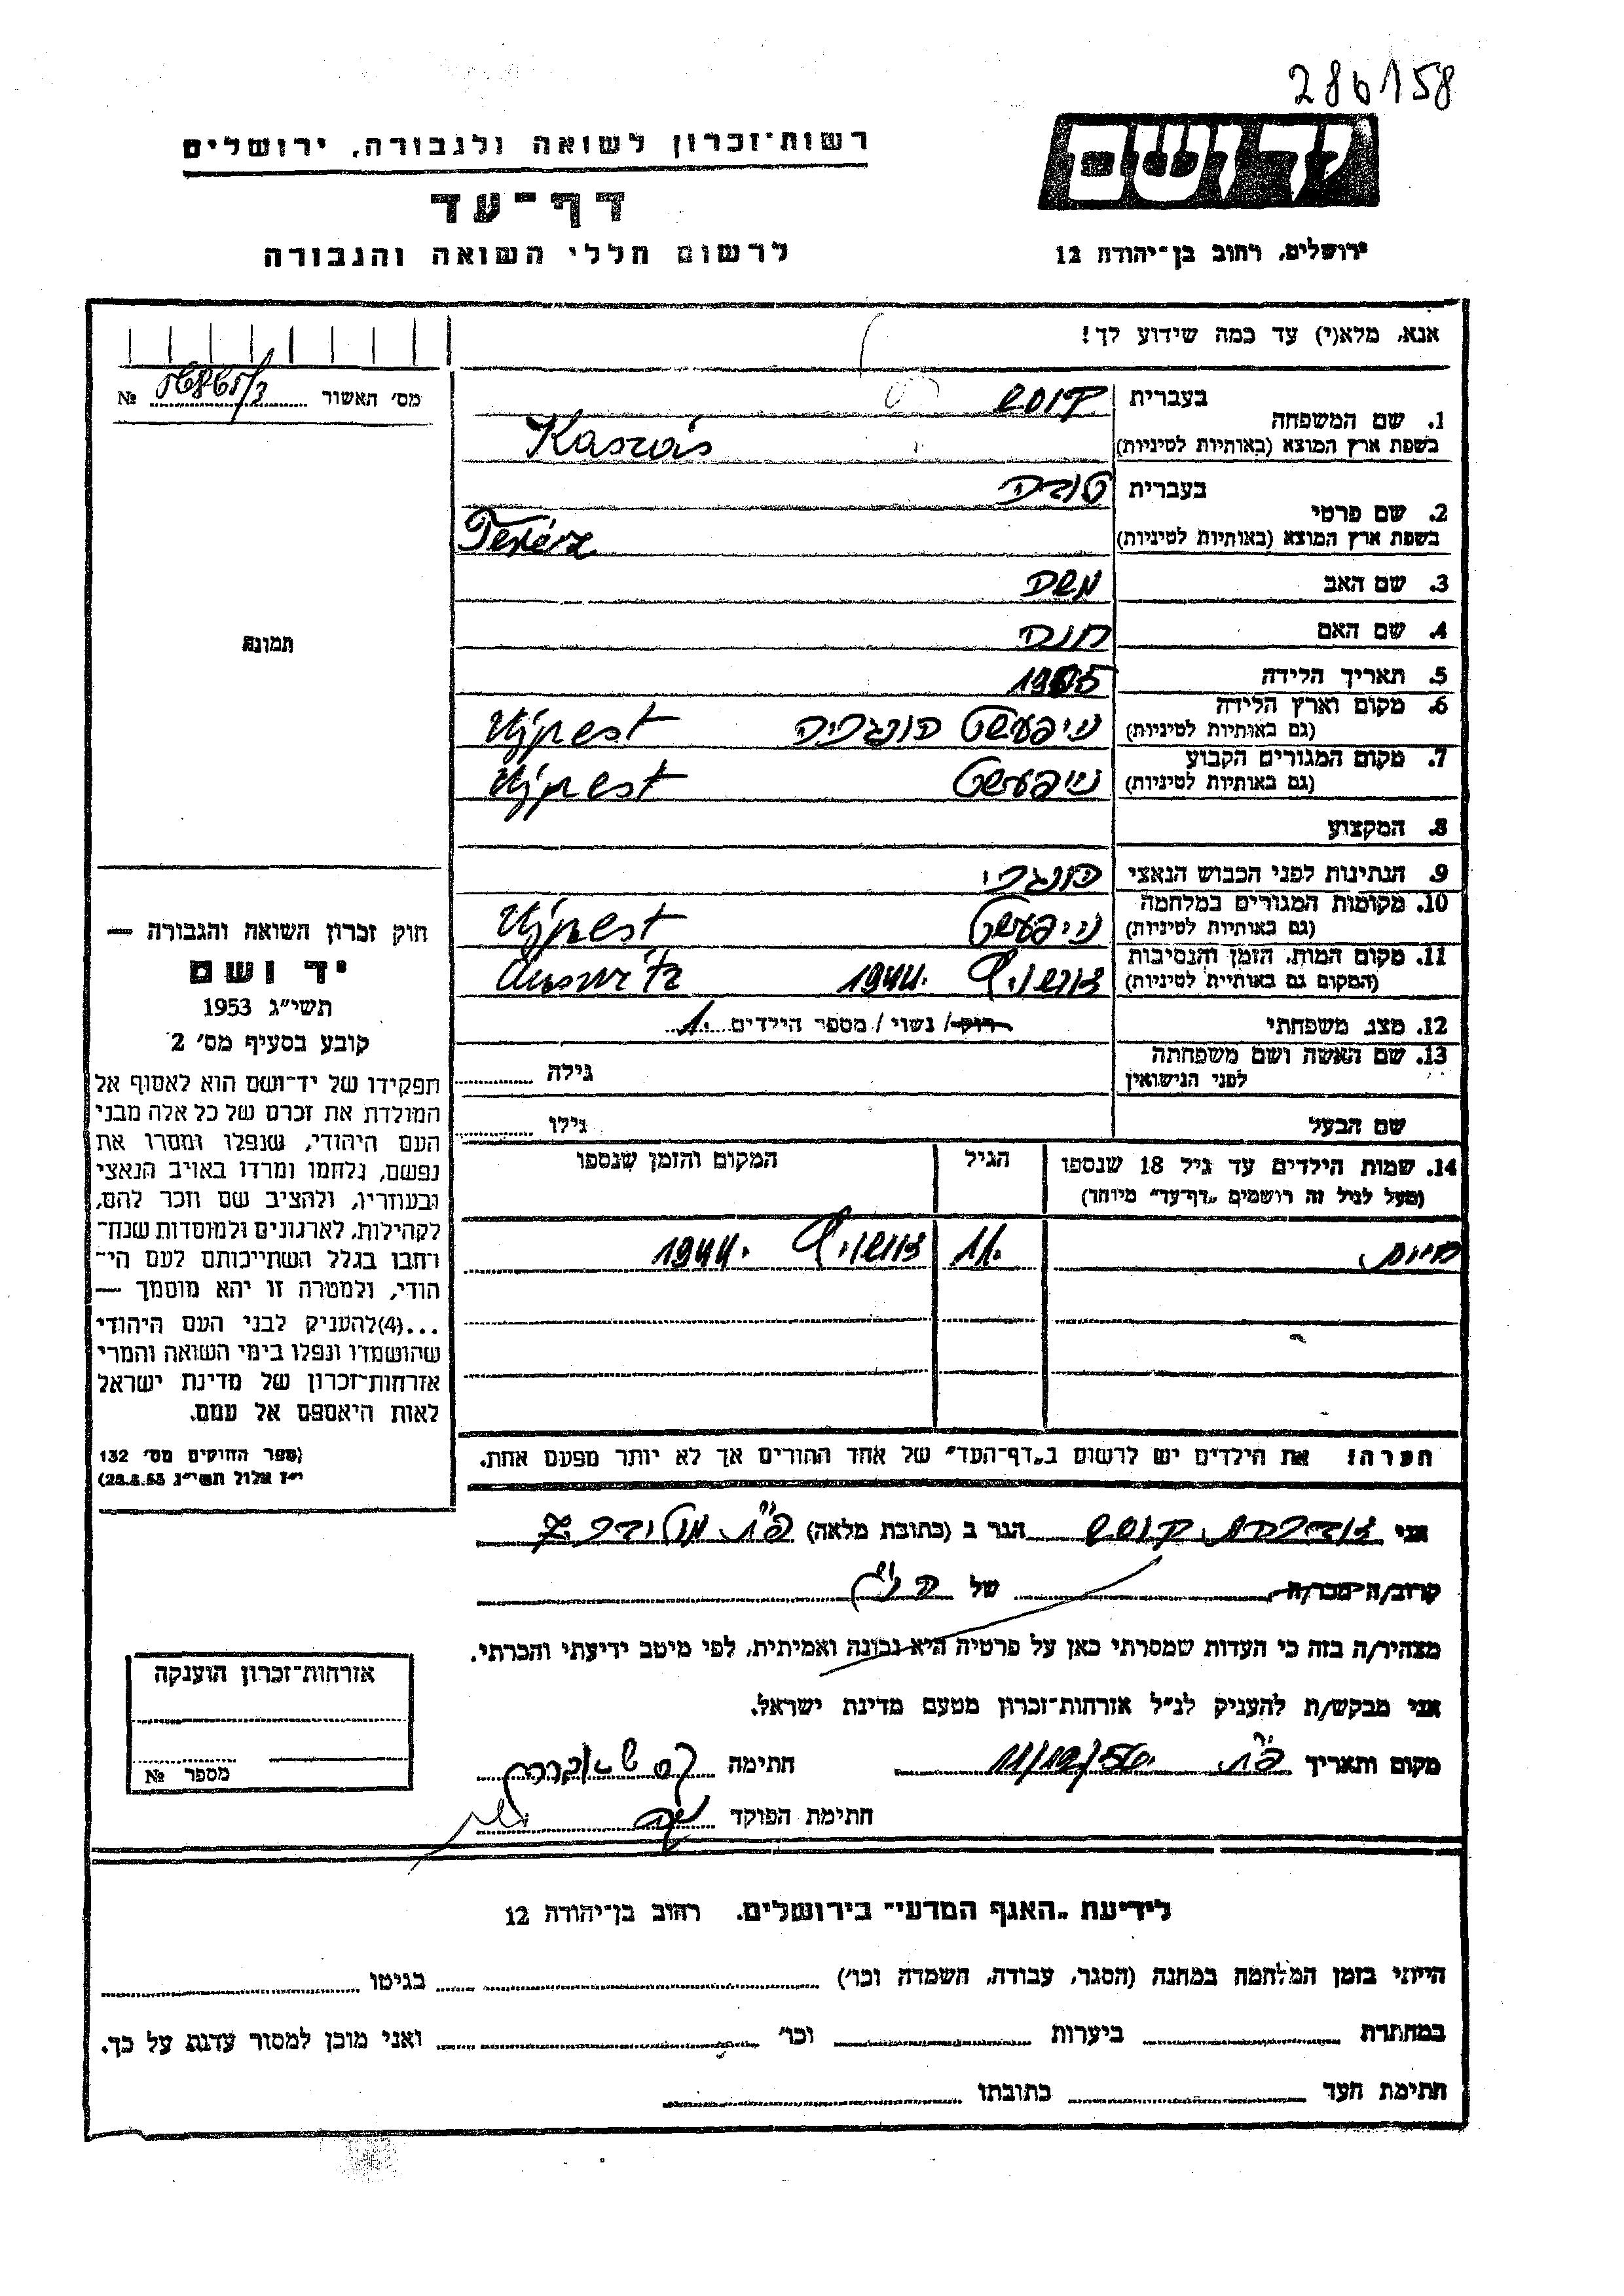 286158
יד ושם
רשות־זכרון לשואה ולגבורה, ירושלים
דף־עד
לרשום חללי השואה והגבורה
ירושלים, רחוב בן־יהודה 12
אנא, מלא(י) עד כמה שידוע לך!
מס׳ האשור №
1. שם המשפחה
בעברית
בשפת ארץ המוצא (באותיות לטיניות) Kaszás
2. שם פרטי
בעברית
בשפת ארץ המוצא (באותיות לטיניות) Teréz
3. שם האב משה
4. שם האם חנה
5. תאריך הלידה
6. מקום וארץ הלידה
(גם באותיות לטיניות) נייפעשט הונגריה Ujpest
7. מקום המגורים הקבוע
(גם באותיות לטיניות) נייפעשט Ujpest
8. המקצוע
9. הנתינות לפני הכבוש הנאצי הונגרי
10. מקומות המגורים במלחמה
(גם באותיות לטיניות) נייפעשט Ujpest
11. מקום המות, הזמן והנסיבות
(המקום גם באותיות לטיניות) אושוויץ 1944. Auswitz
12. מצב משפחתי רוק/ נשוי / מספר הילדים 1.
13. שם האשה ושם משפחתה
לפני הנישואין
גילה
שם הבעל גילו
14. שמות הילדים עד גיל 18 שנספו
(מעל לגיל זה רושמים „דף־עד״ מיוחד)
הגיל
המקום והזמן שנספו
11. אושוויץ 1944.
תמונה
חוק זכרון השואה והגבורה —
יד ושם
תשי״ג 1953
קובע בסעיף מס׳ 2
תפקידו של יד־ושם הוא לאסוף אל
המולדת את זכרם של כל אלה מבני
העם היהודי, שנפלו ומסרו את
נפשם, נלחמו ומרדו באויב הנאצי
ובעוזריו, ולהציב שם וזכר להם,
לקהילות, לארגונים ולמוסדות שנח־
רבו בגלל השתייכותם לעם הי־
הודי, ולמטרה זו יהא מוסמך —
...(4)להעניק לבני העם היהודי
שהושמדו ונפלו בימי השואה והמרי
אזרחות־זכרון של מדינת ישראל
לאות היאספם אל עמם.
(ספר החוקים מס׳ 132
י״ז אלול תשי״ג 28.8.53)
הערה! את הילדים יש לרשום ב„דף־העד״ של אחד ההורים אך לא יותר מפעם אחת.
אני הגר ב (כתובת מלאה)
קרוב/ה־מכר/ה של
מצהיר/ה בזה כי העדות שמסרתי כאן על פרטיה היא נכונה ואמיתית, לפי מיטב ידיעתי והכרתי.
אני מבקש/ת להעניק לנ״ל אזרחות־זכרון מטעם מדינת ישראל.
מקום ותאריך חתימה
חתימת הפוקד
אזרחות־זכרון הוענקה
מספר №
לידיעת „האגף המדעי״ בירושלים, רחוב בן־יהודה 12
הייתי בזמן המלחמה במחנה (הסגר, עבודה, השמדה וכו׳) בגיטו
במחתרת ביערות וכו׳ ואני מוכן למסור עדות על כך.
חתימת העד כתובתו